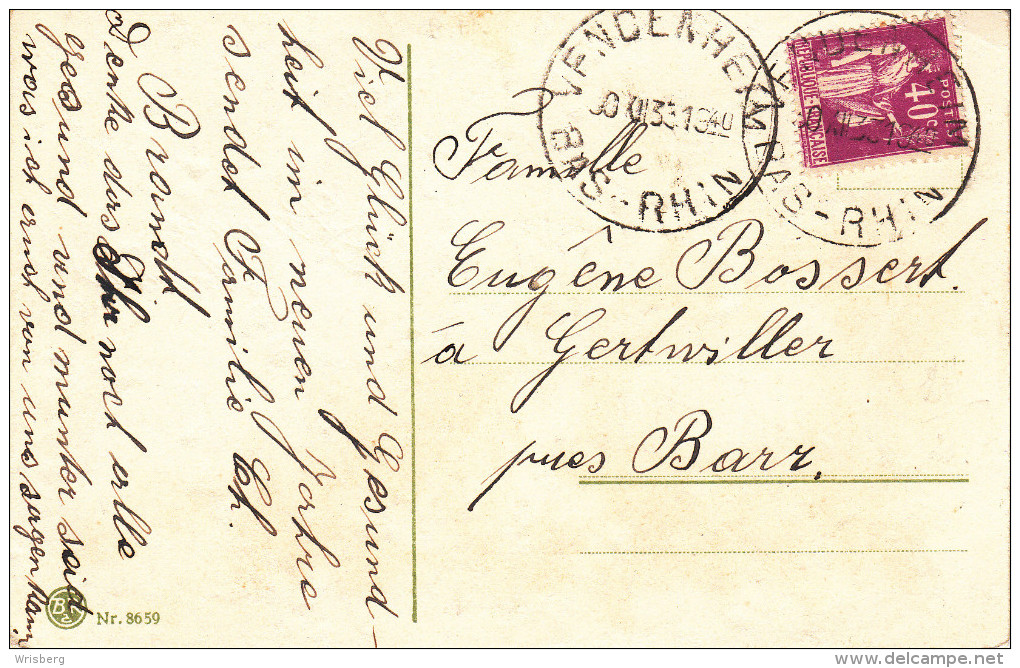 Viel Glück und Gesund-
heit im neuen Jahre
sendet Familie Ch.
Brandt
Denke das Ihr noch alle
gesund und munter seid
was ich auch von uns sagen kann.
VENDENHEIM
30 XII 33 1940
BAS-RHIN
VENDENHEIM
XII 33 1940
BAS-RHIN
REPUBLIQUE FRANÇAISE
POSTES
40c
Famille
Eugêne Bossert.
á Gertwiller
pres Barr,
Nr. 8659
Wrisberg
delcampe.net